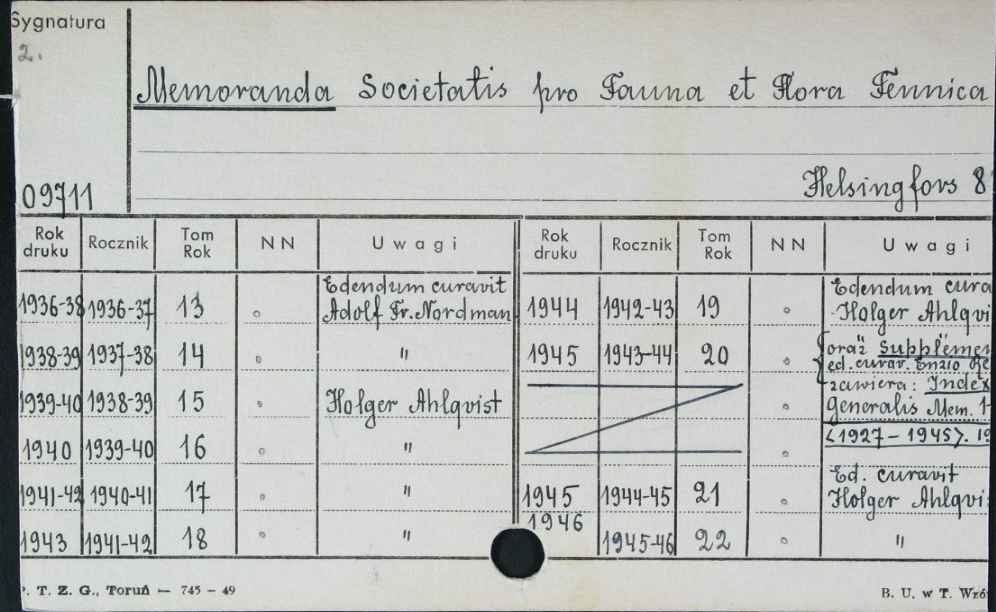 Sygnatura
2.
Memoranda Societatis pro Fauna et Flora Fennica
Helsingfors 8
09711
Rok druku Rocznik Tom Rok NN Uwagi Rok druku Rocznik Tom Rok NN Uwagi
1936-38 1936-37 13 " Edendum curavit Adolf Fr. Nordman 1944 1942-43 19 " Edendum cura Holger Ahlqvi
1938-39 1937-38 14 " " 1945 1943-44 20 " " oraz Supplemen
ed. curav. Enzio Re
zawiera: Index
1939-40 1938-39 15 " Holger Ahlqvist " Generalis Mem. 1-
1940 1939-40 16 " " " <1927-1945>. 19
1941-42 1940-41 17 " " 1945 1944-45 21 " Ed. curavit Holger Ahlqvi
1943 1941-42 18 " " 1946 1945-46 22 " "
P. T. Z. G., Toruń – 745 – 49
B. U. w T. Wzó